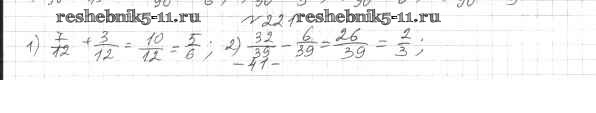 reshebnik5-11.ru №221 reshebnik5-11.ru
1) 7/12 + 3/12 = 10/12 = 5/6 ; 2) 32/39 - 6/39 = 26/39 = 2/3 ;
- 41 -